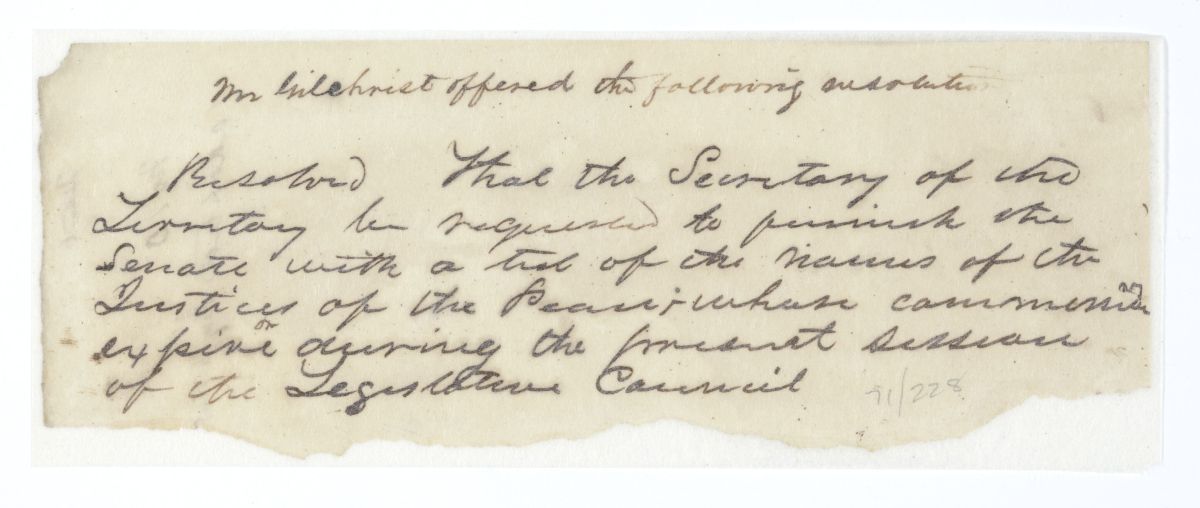 Mr Gilchrist offered the following resolution
Resolved That the Secretary of the
Territory be requested to furnish the
Senate with a list of the names of the
Justices of the Peace whose commissions
expire on during the present session
of the Legislative Council
71/228